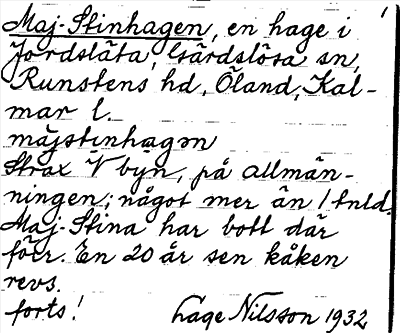 Maj-Stinhagen, en hage i
Jordsläta, Gärdslösa sn,
Runstens hd, Öland, Kal-
mar l.
măjstınhagən
Strax V byn, på allmän-
ningen; något mer än 1 tnld.
Maj-Stina har bott där
förr. En 20 år sen kåken
revs.
forts! Lage Nilsson 1932